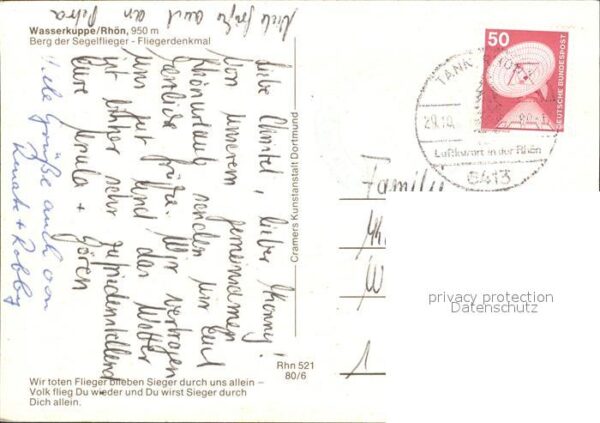 Wasserkuppe/Rhön, 950 m
Berg der Segelflieger - Fliegerdenkmal
Viele Grüße auch an Petra
Liebe Christel, lieber Konny!
Von unserem gemeinsamen
Rhönurlaub senden wir Euch
herzliche Grüße. Wir vertragen
uns gut und das Wetter
ist bisher sehr zufriedenstellend
Eure Ursula + Jören
Viele Grüße auch von
Renate + Robby
Cramers Kunstanstalt Dortmund
Rhn 521
80/6
Wir toten Flieger blieben Sieger durch uns allein –
Volk flieg Du wieder und Du wirst Sieger durch
Dich allein.
50
DEUTSCHE BUNDESPOST
TANN
29.10.
Luftkurort in der Rhön
6413
Familie
W
1
privacy protection
Datenschutz